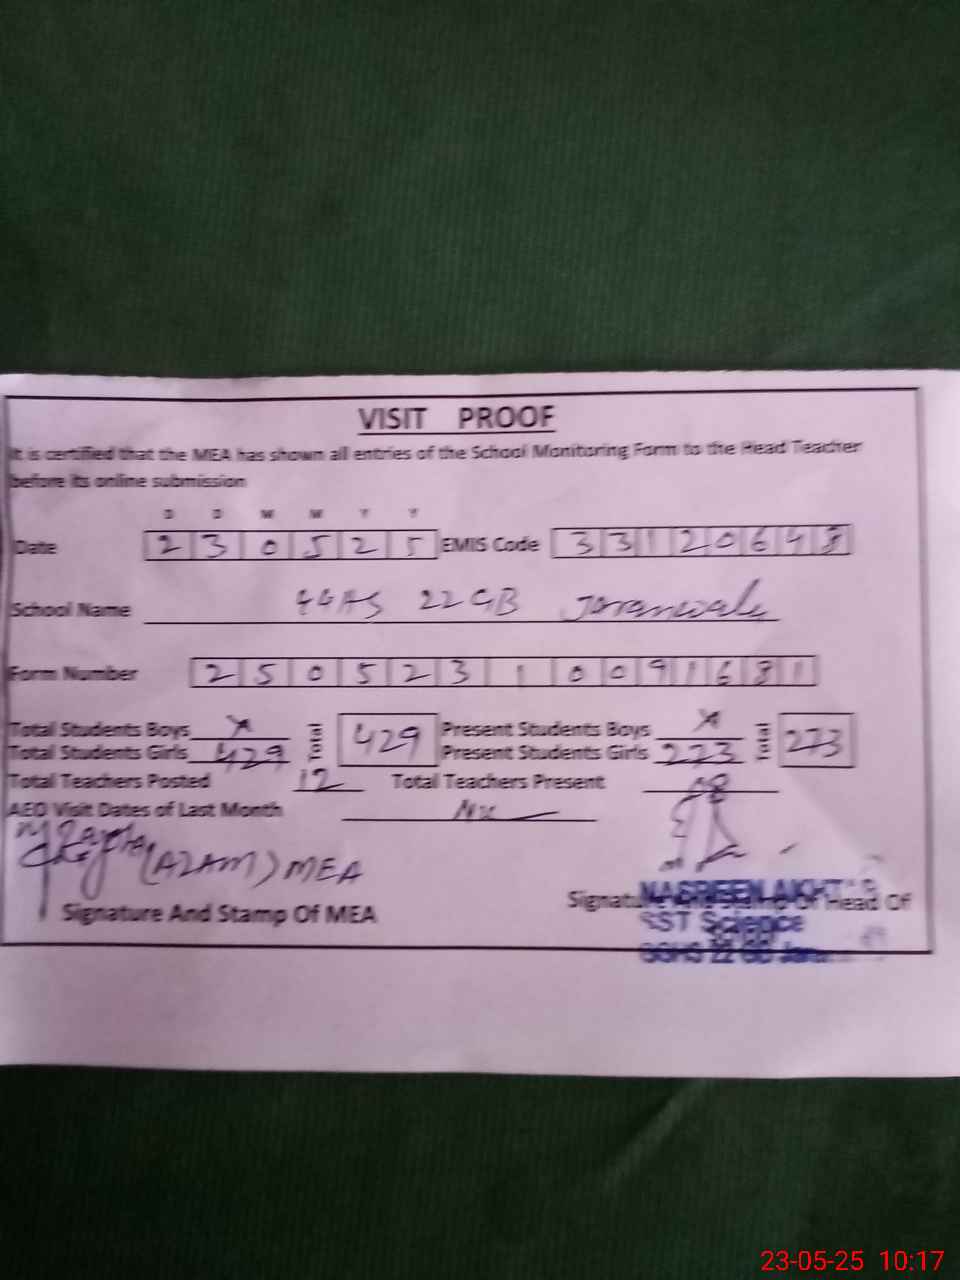 VISIT PROOF
It is certified that the MEA has shown all entries of the School Monitoring Form to the Head Teacher
before its online submission
D D M M Y Y
Date 2 3 0 5 2 5 EMIS Code 3 3 1 2 0 6 4 8
School Name GGHS 22 GB Jaranwala
Form Number 2 5 0 5 2 3 1 0 0 9 1 6 8 1
Total Students Boys x Total 429 Present Students Boys x Total 273
Total Students Girls 429 Present Students Girls 273
Total Teachers Posted 12 Total Teachers Present 08
AEO Visit Dates of Last Month Nil
(AZAM) MEA
Signature And Stamp Of MEA
Signature And Stamp Of Head Of
NASREEN AKHTAR
SST Science
GGHS 22 GB
23-05-25 10:17